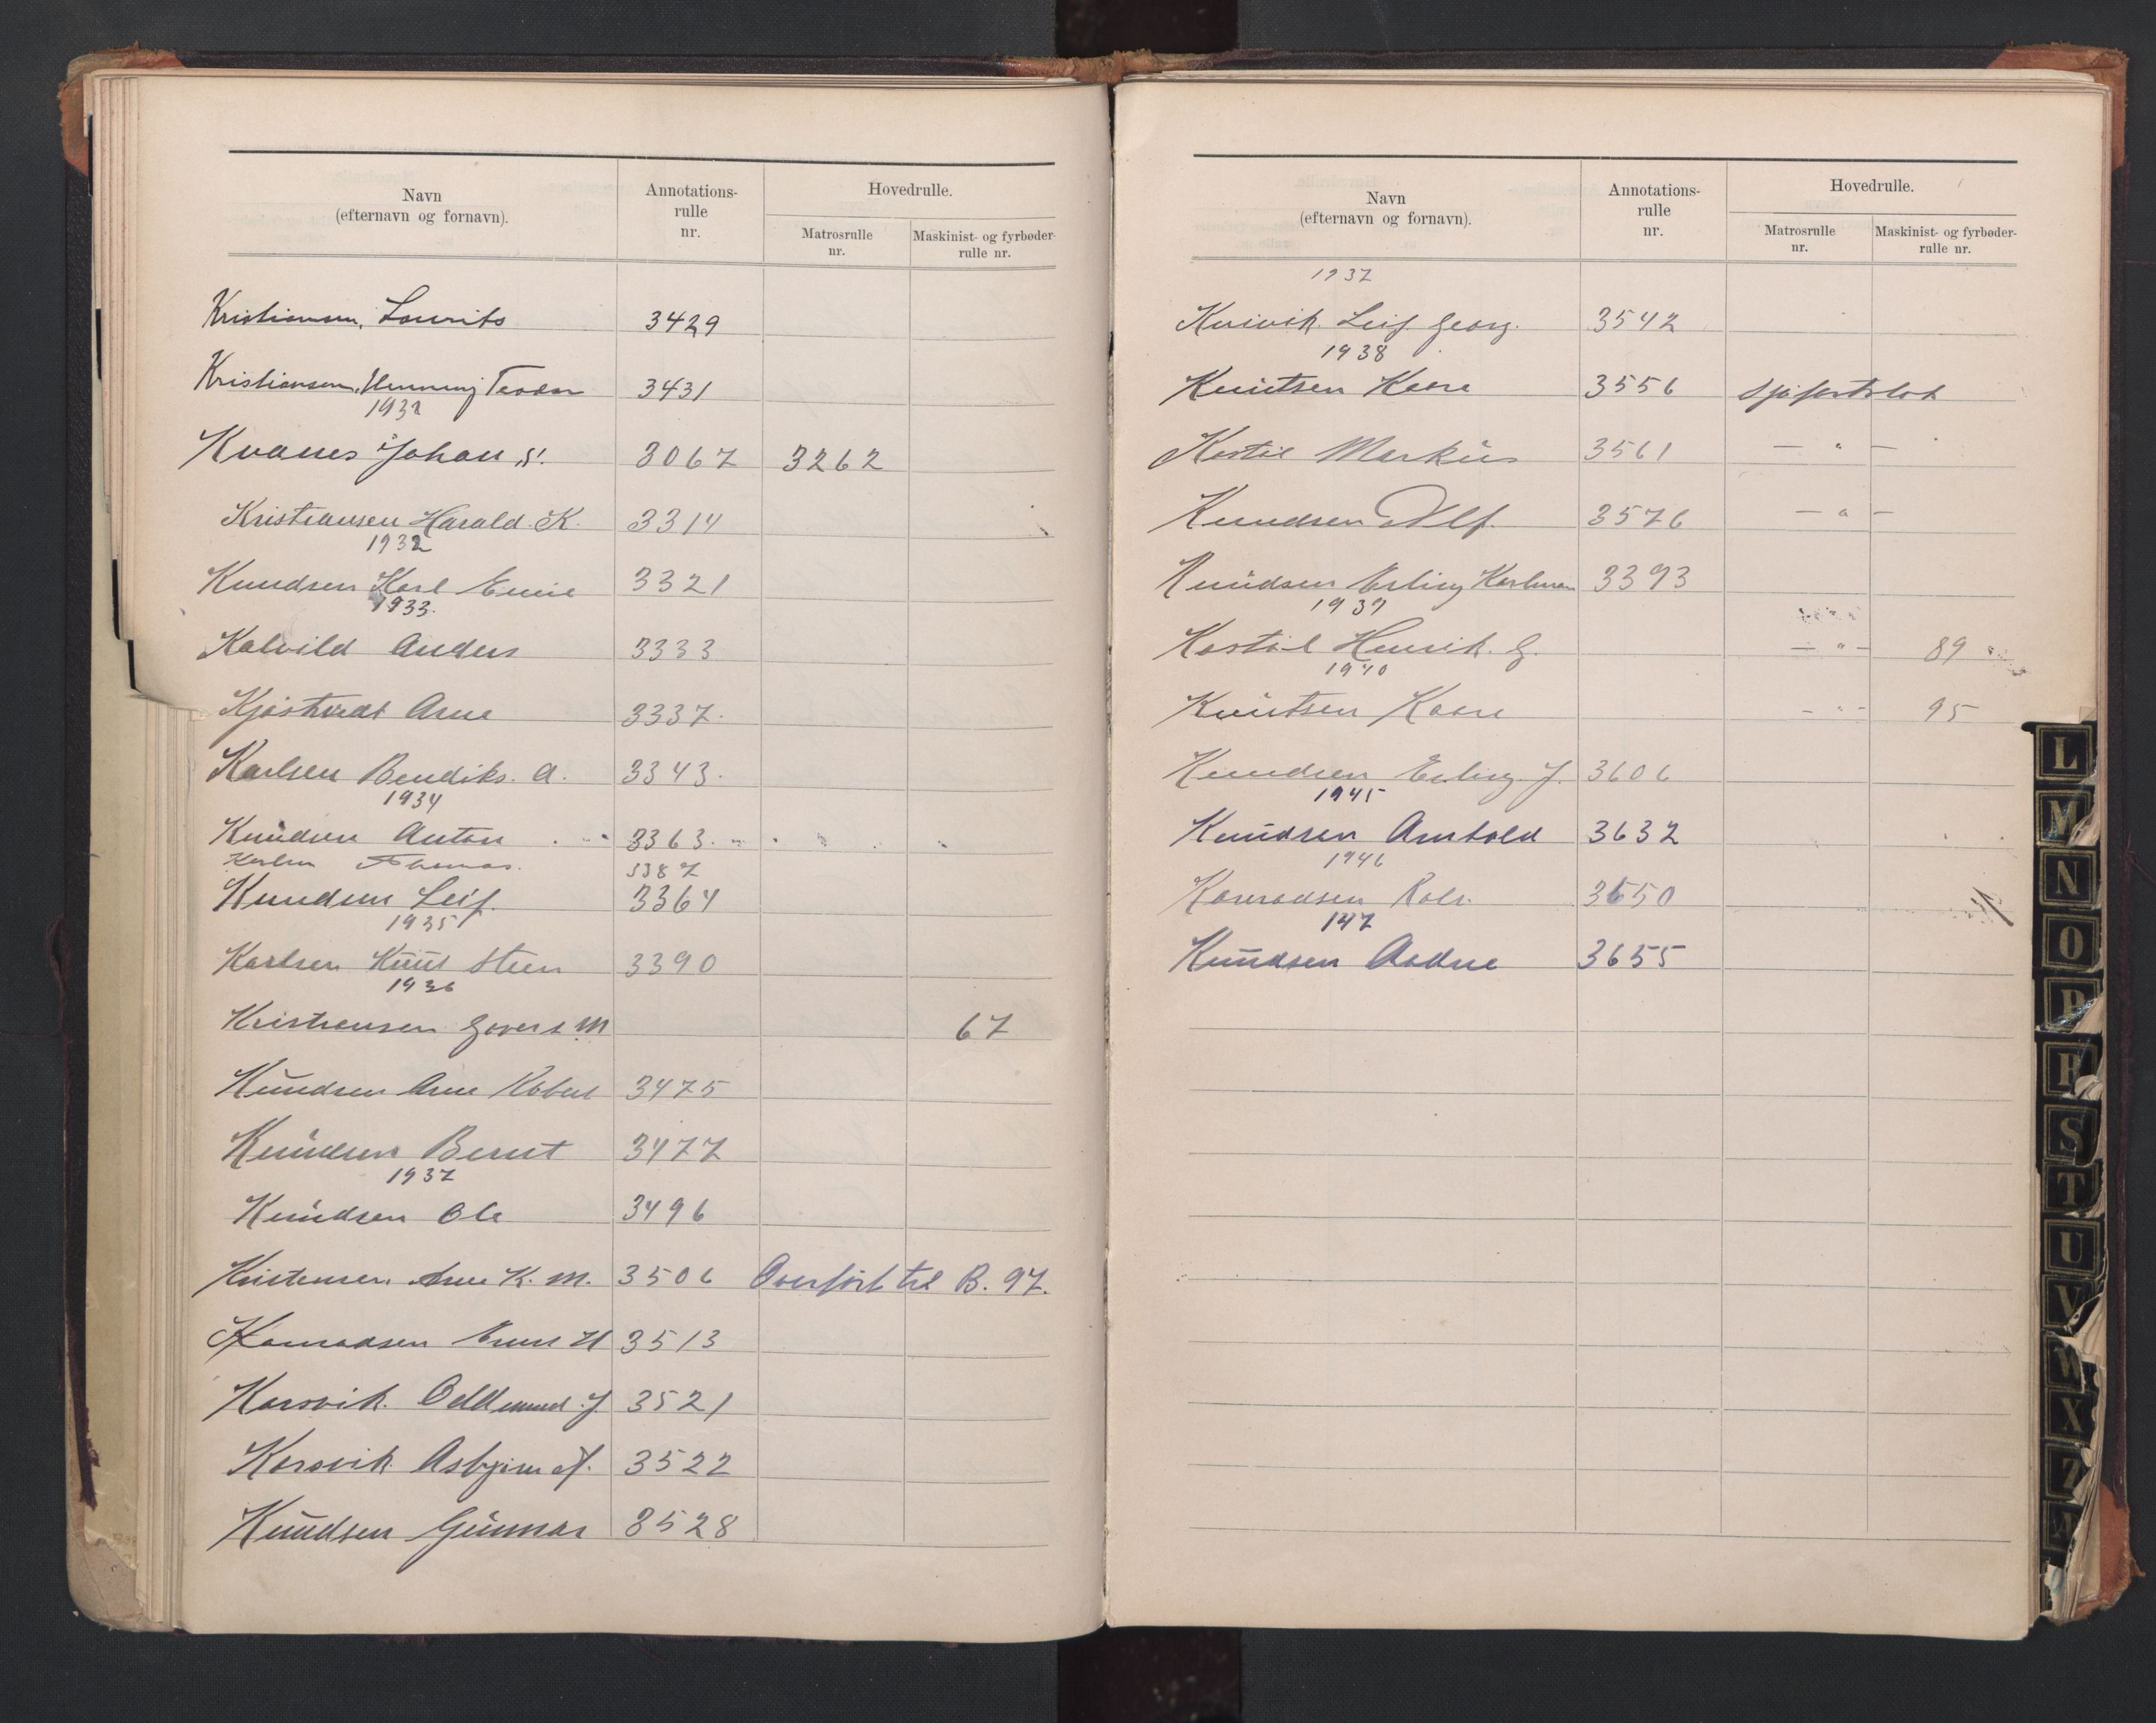 Navn
(efternavn og fornavn).
Annotations-
rulle
nr.
Hovedrulle.
Matrosrulle
nr.
Maskinist- og fyrbøder-
rulle nr.
Kristiansen, Lourits 3429
Kristiansen, Henning Teodor 3431
1932
Kvanes Johan S. 3067 3262
Kristiansen Harald K. 3314
1932
Knudsen Karl Emil 3321
1933.
Kalvild Anders 3333
Kjøstvedt Arne 3337.
Karlsen Bendiks. A. 3343.
1934
Knudsen Anton 3363.
Karlsen Thomas. 3387
Knudsen Leif. 3364
1935
Karlsen Knut Steen 3390
1936
Kristiansen Govert M 67
Knudsen Arne Robert 3475
Knudsen Bernt 3477
1937
Knudsen Ole 3496
Kristensen Arne K. M. 3506 Overført til B. 97.
Konradsen Ernst H 3513
Korsvik. Oddmund J. 3521
Korsvik Asbjørn J. 3522
Knudsen Gunnar 3528
Navn
(efternavn og fornavn).
Annotations-
rulle
nr.
Hovedrulle.
Matrosrulle
nr.
Maskinist- og fyrbøder-
rulle nr.
1937
Kvivik. Leif Georg. 3542
1938
Knutsen Kaare 3556 Sjøfartsbok
Kostøl Markus 3561 — " —
Knudsen Alf. 3576 — " —
Knudsen Erling Karluman 3393
1939
Kostøl Henrik. G. — " — 89
1940
Knutsen Kaare - " - 95
Knudsen Erling J. 3606
1945
Knudsen Arnhold 3632
1946
Konradsen Rolv. 3650
147
Knudsen Aadne 3655
L
M
N
O
P
R
S
T
U
V
W
X
Z